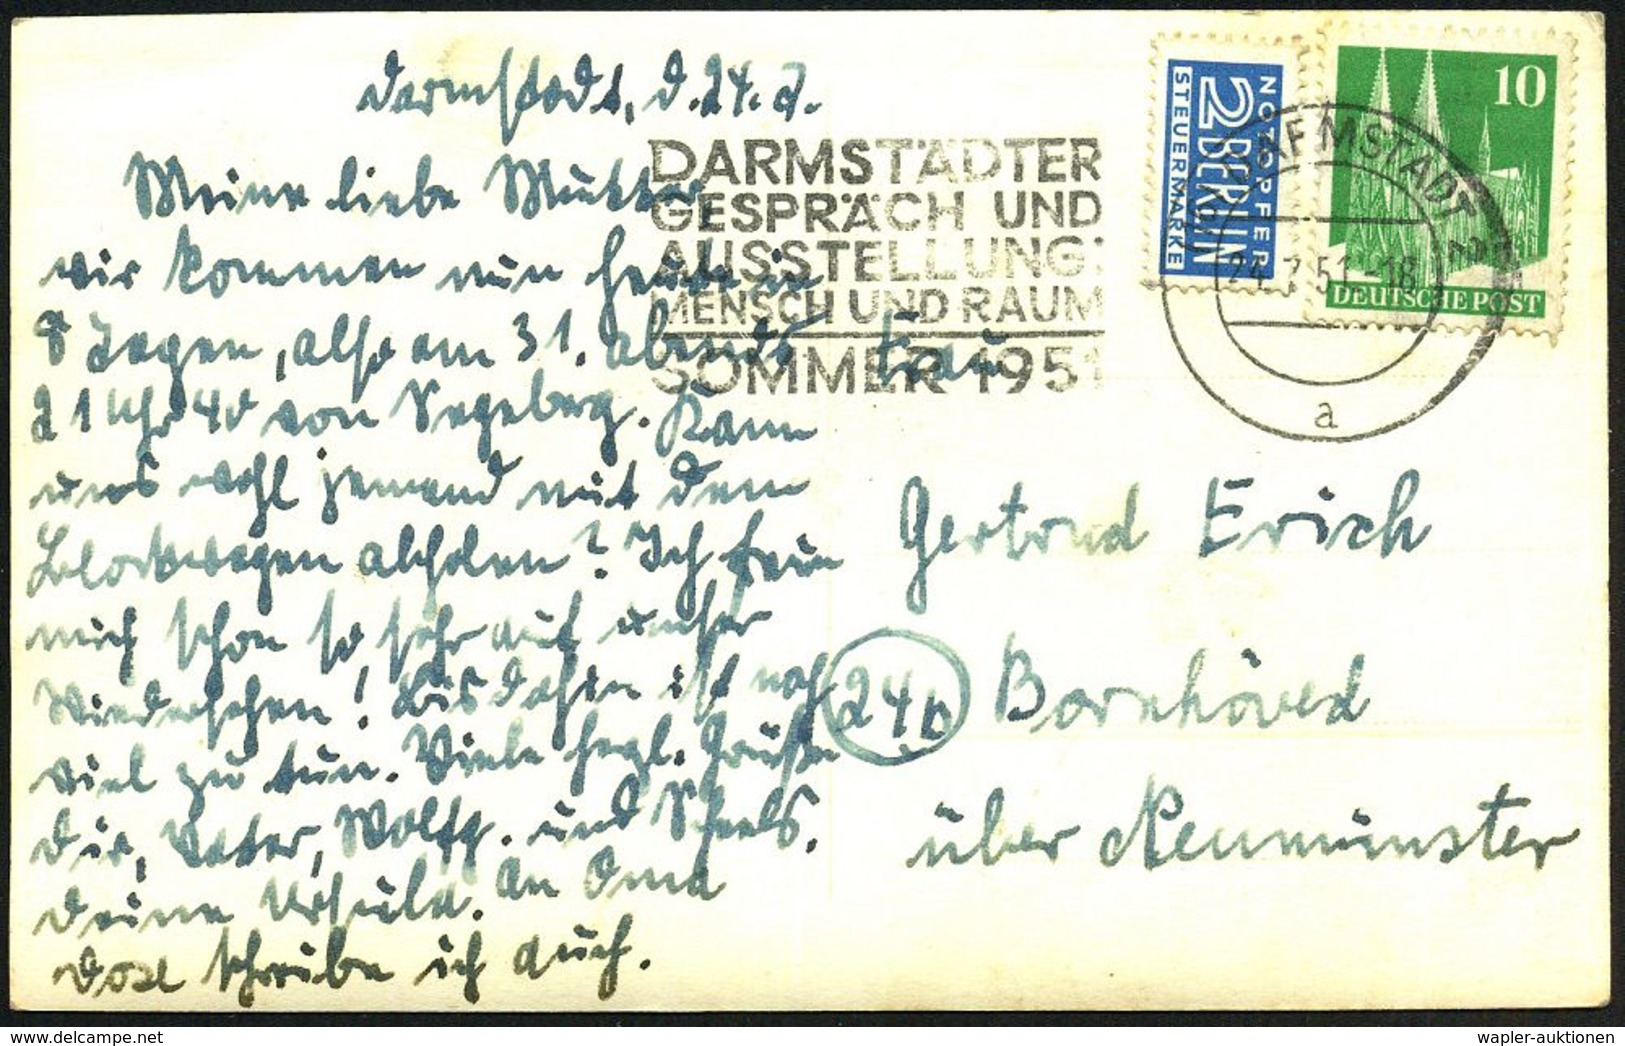 Darmstadt, d. 24. 7.
Meine liebe Mutter,
wir kommen nun heute in
8 Tagen, also am 31. abends
21 Uhr 40 von Segeberg. Kann
uns wohl jemand mit dem
abholen? Ich freu
mich schon so sehr auf unser
Wiedersehen! Bis dahin ist noch
viel zu tun. Viele herzl. Grüße
Dir, Vater, Wolfg. und
Deine Ursula. An Oma
schreibe ich auch.
DARMSTÄDTER
GESPRÄCH UND
AUSSTELLUNG:
MENSCH UND RAUM
SOMMER 1951
NOTOPFER
2 BERLIN
STEUERMARKE
10
DEUTSCHE POST
(16) DARMSTADT 2
24.7.51.-18
a
Frau
Gertrud Erich
24b Bornhöved
über Neumünster
wapler-auktionen